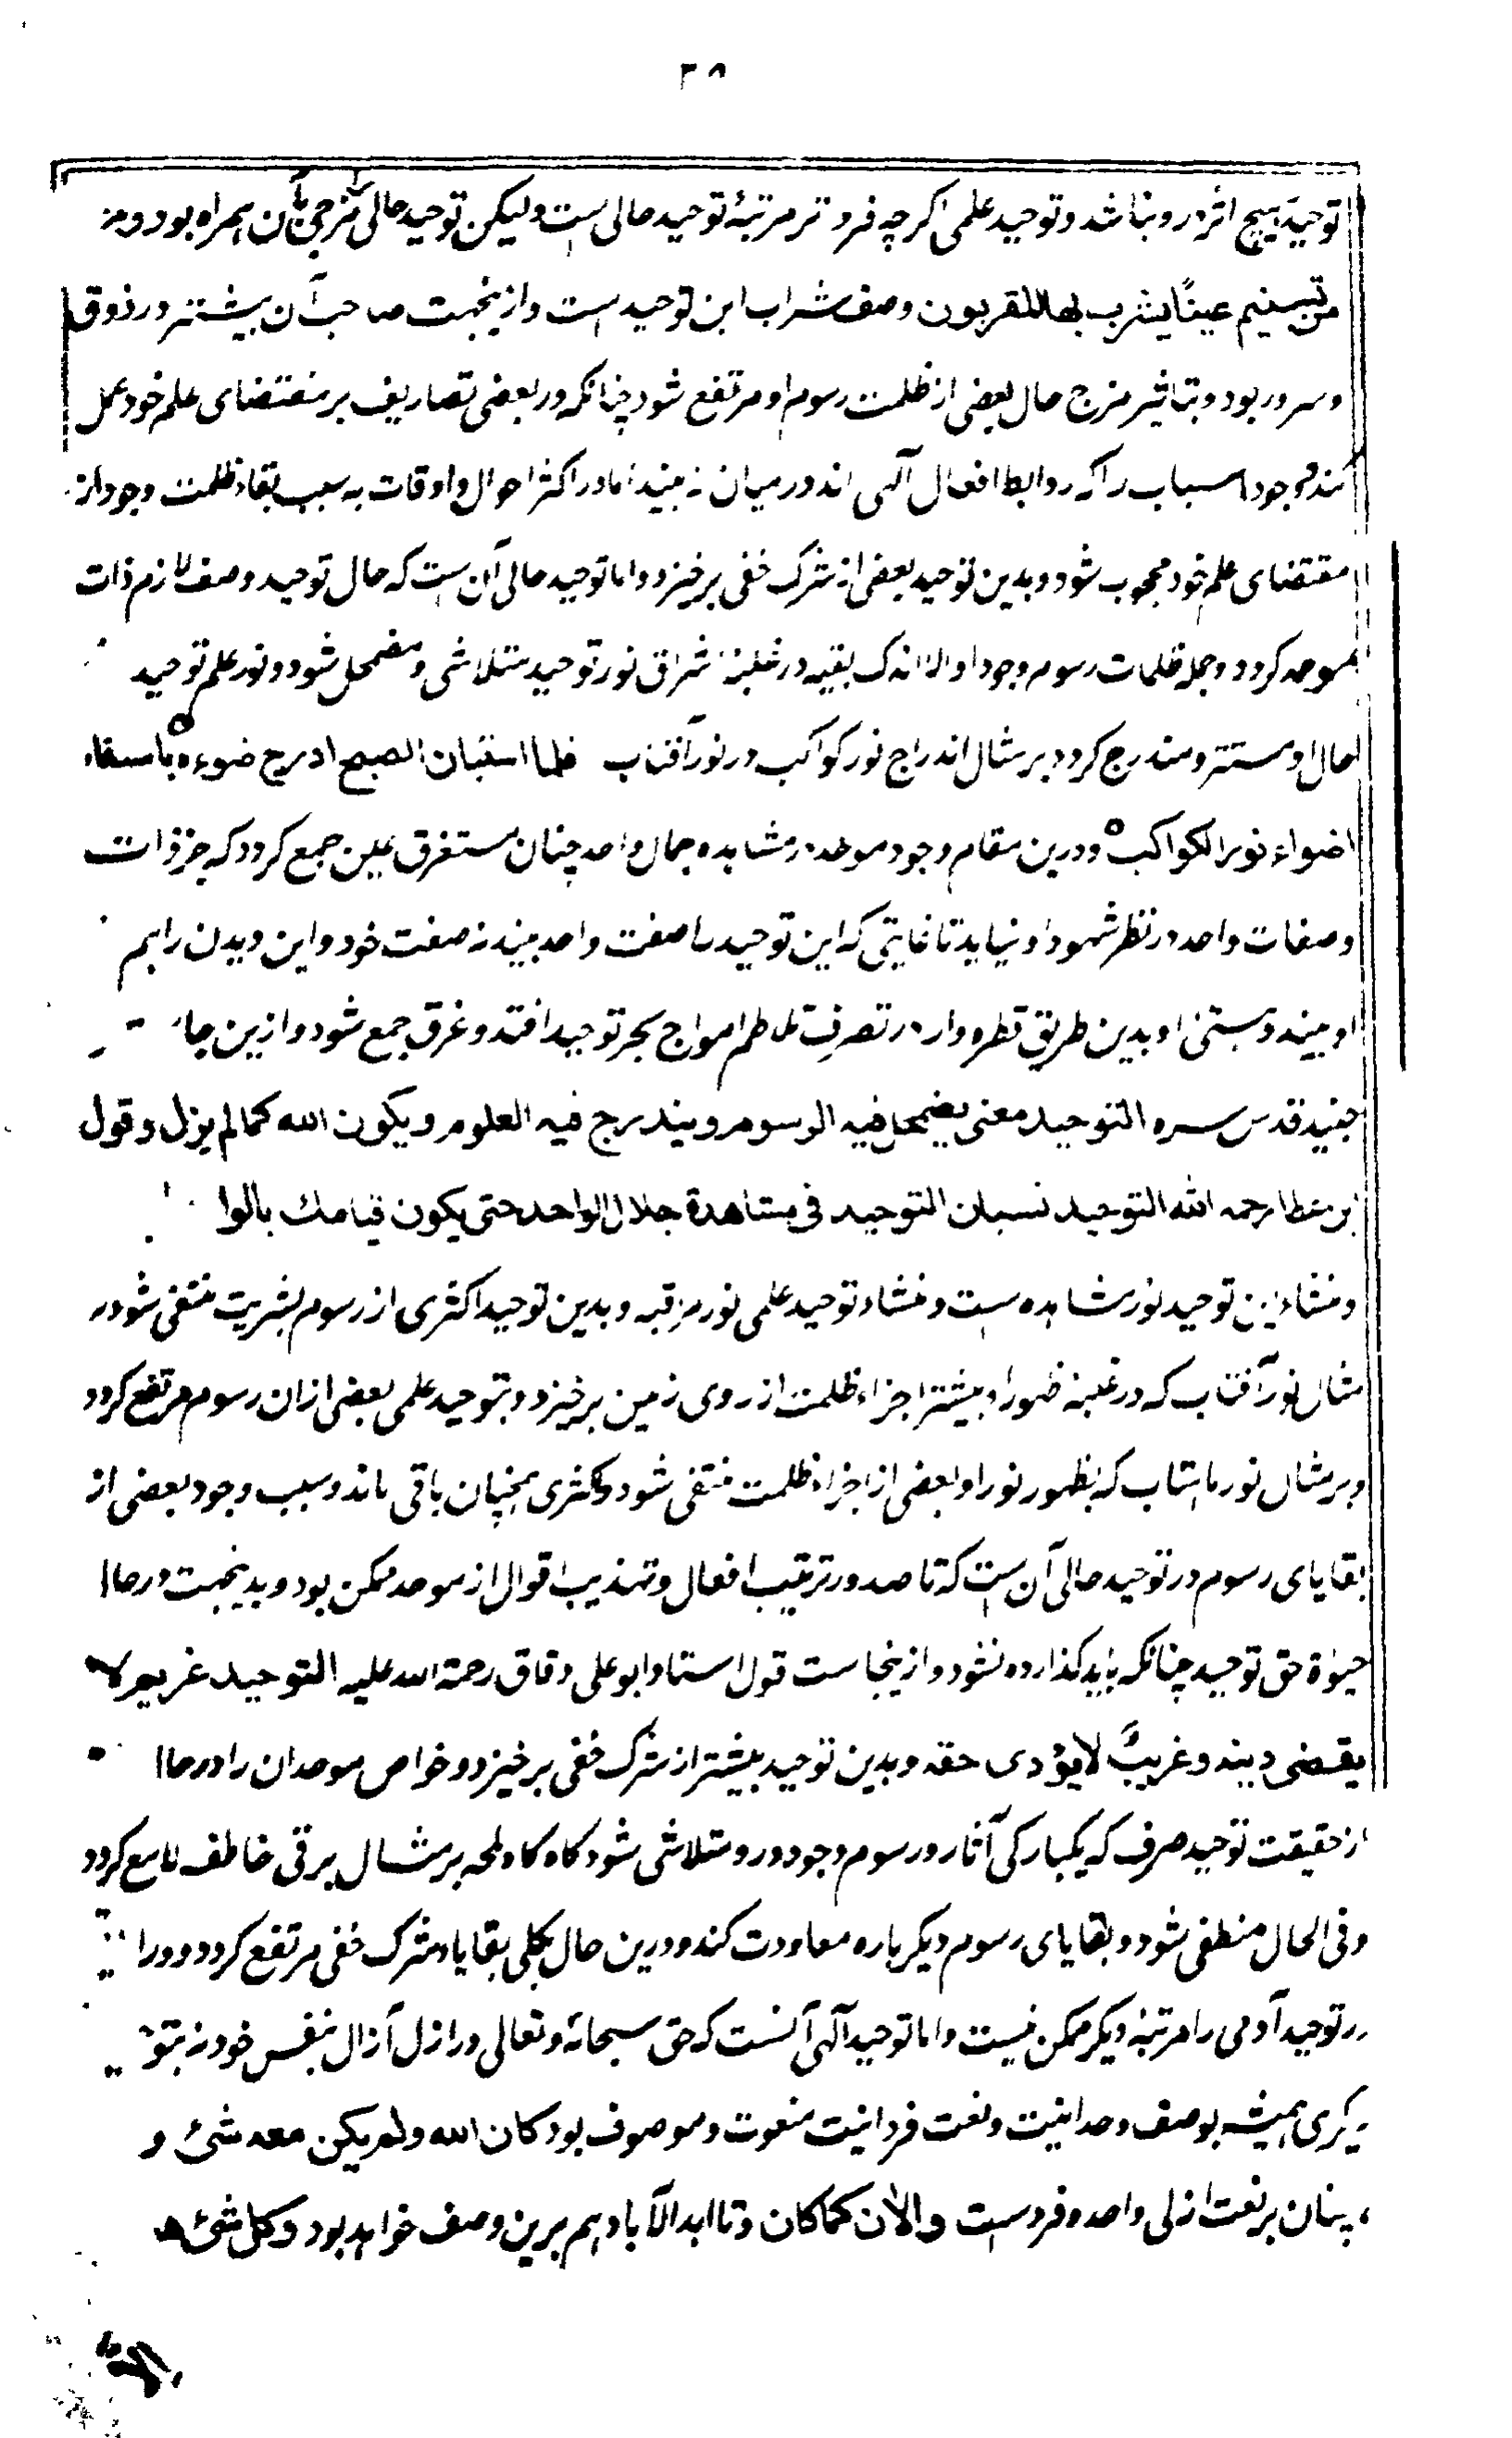 ۳۸
توحید هیچ اثر درو نباشد و توحید علمی اگرچه فروتر مرتبهٔ توحید حالی است ولیکن توحید حالی مزجی بآن همراه بود و مزاجه
من تسنیم عینًا یشرب بها المقربون وصف شراب این توحید است وازینجهت صاحب آن بیشتر در ذوق
و سرور بود و بتاثیر مزج حال بعضی از ظلمت رسوم او مرتفع شود چنانکه در بعضی تصاریف بر مقتضای علم خود عمل
کند و وجود اسباب را که روابط افعال آلهی اند در میان نه بیند اما در اکثر احوال و اوقات به سبب بقاء ظلمت وجود از
مقتضای علم خود محجوب شود و بدین توحید بعضی از شرک خفی برخیزد واما توحید حالی آن ست که حال توحید وصف لازم ذات
موحد گردد و جمله ظلمات رسوم وجود او الا اندک بقیه در غلبهٔ اشراق نور توحید متلاشی و مضمحل شود و نور علم توحید
حال او مستتر و مندرج گردد بر مثال اندراج نور کواکب در نور آفتاب فلما استبان الصبح ادرج ضوءه باسفاره
اضواء نور الکواکب ودرین مقام وجود موحد در مشاهده جمال واحد چنان مستغرق عین جمع گردد که جز ذات
وصفات واحد در نظر شهود او نیاید تا غایتی که این توحید را صفت واحد بیند نه صفت خود و این دیدن را هم
او بیند و هستی او بدین طریق قطره وار در تصرف تلاطم امواج بحر توحید افتد و غرق جمع شود وازین جا
جنید قدس سره التوحید معنی یضمحل فیه الرسوم و یندرج فیه العلوم و یکون الله کما لم یزل و قول
ابن عطا رحمه الله التوحید نسیان التوحید فی مشاهدة جلال الواحد حتی یکون قیامک بالوا
و منشاء این توحید نور مشاهده ست و منشاء توحید علمی نور مراقبه و بدین توحید اکثری از رسوم بشریت منتفی شود بر
مثال نور آفتاب که در غلبه ظهور او بیشتر اجزاء ظلمت از روی زمین برخیزد و بتوحید علمی بعضی ازان رسوم مرتفع گردد
و بر مثال نور ماهتاب که بظهور نور او بعضی از اجزاء ظلمت منتفی شود و اکثری همچنان باقی ماند و سبب وجود بعضی از
بقایای رسوم در توحید حالی آن ست که تا صدور ترتیب افعال و تهذیب اقوال از موحد ممکن بود و بدینجهت در حال
حیوٰة حق توحید چنانکه باید گذارده نشود وازینجاست قول استاد ابو علی دقاق رحمة الله علیه التوحید غریم لا
یقضی دینه و غریبٌ لا یؤدی حقه و بدین توحید بیشتر از شرک خفی برخیزد و خواص موحدان را در حال
از حقیقت توحید صرف که یکبارگی آثار و رسوم وجود درو متلاشی شود گاه گاه لمحه بر مثال برقی خاطف لامع گردد
و فی الحال منطفی شود و بقایای رسوم دیگر باره معاودت کند و درین حال بکلی بقایاء شرک خفی مرتفع گردد و ورا
در توحید آدمی را مرتبهٔ دیگر ممکن نیست واما توحید آلهی آنست که حق سبحانهٔ و تعالی در ازل آزال بنفس خود نه بتو
دیگری همیشه بوصف وحدانیت و نعت فردانیت منعوت و موصوف بود کان الله ولم یکن معه شئ و
چنان بر نعت ازلی واحد و فرد ست والاٰن کما کان و تا ابد الآباد هم برین وصف خواهد بود و کل شئ ه